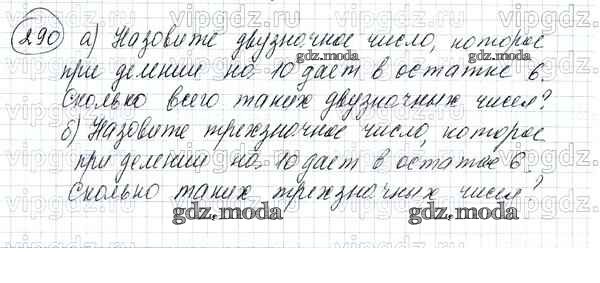 290 а) Назовите двузначное число, которое
при делении на 10 дает в остатке 6.
Сколько всего таких двузначных чисел?
б) Назовите трехзначное число, которое
при делении на 10 дает в остатке 6.
Сколько таких трехзначных чисел?
gdz.moda gdz.moda
gdz.moda gdz.moda